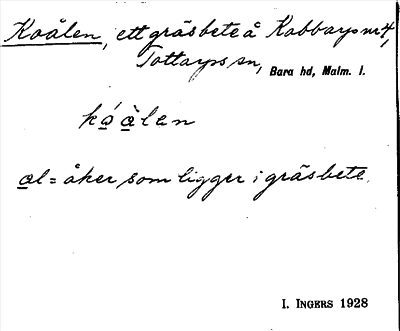 Koålen, ett gräsbete å Kabbarps nr 4,
Tottarps sn, Bara hd, Malm. l.
kó̠à̠len
a̠l = åker som ligger i gräsbete.
I. INGERS 1928